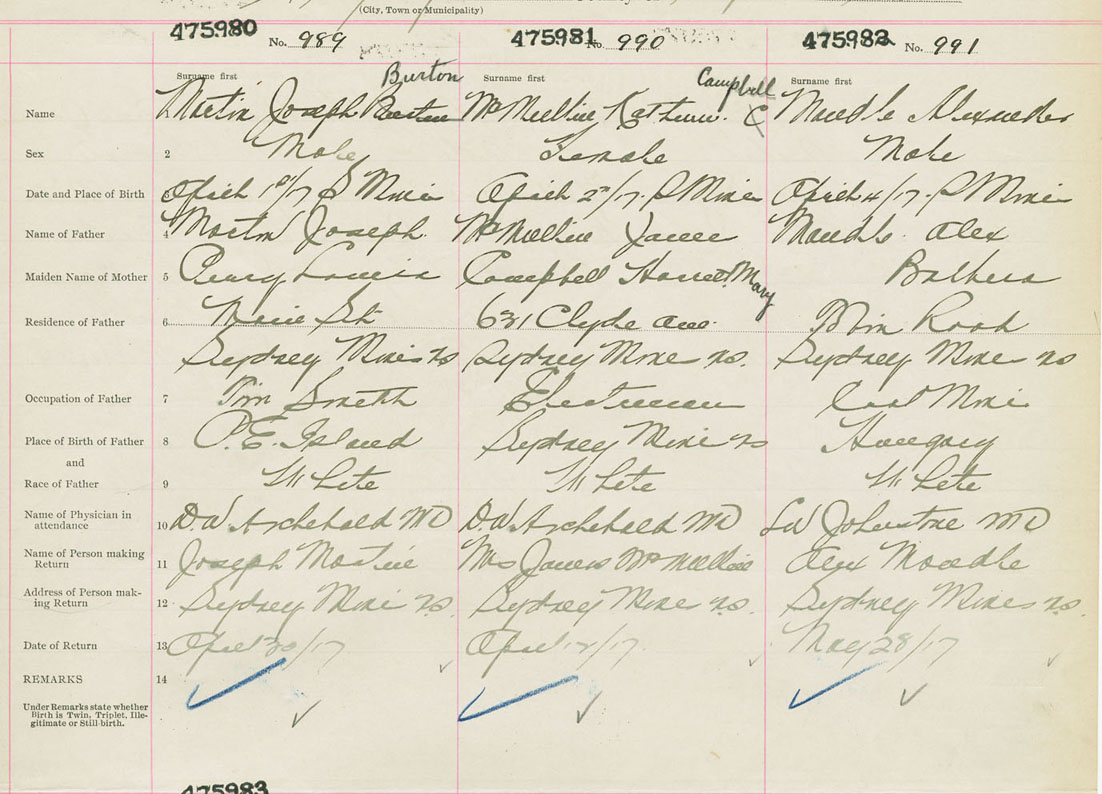 (City, Town or Municipality)
475980 No. 989 475981 No. 990 475982 No. 991
Surname first Burton Surname first Campbell Surname first
Name Martin Joseph Burton McMullin C Maudle Alexander
Sex 2 Male Female Male
Date and Place of Birth 3 April 1st/17 S Mines April 2nd/17. S Mines April 4/17. S Mines
Name of Father 4 Martin Joseph. McMullin James Maudle. Alex
Maiden Name of Mother 5 Louisa Campbell Harriet Mary Barbera
Residence of Father 6 631 Clyde Ave. Road
Sydney Mines NS Sydney Mines NS. Sydney Mines NS
Occupation of Father 7 Tin Smith Coal Mine
Place of Birth of Father 8 P.E. Island Sydney Mines NS Hungary
and
Race of Father 9 White White White
Name of Physician in
attendance 10 D.W. Archibald MD D.W. Archibald MD LW Johnstone MD
Name of Person making
Return 11 Joseph Martin Mrs James McMullin Alex Maudle
Address of Person mak-
ing Return 12 Sydney Mines NS Sydney Mines NS. Sydney Mines NS.
Date of Return 13 April 30/17 April 12/17. May 28/17
REMARKS 14
Under Remarks state whether
Birth is Twin, Triplet, Ille-
gitimate or Still-birth.
475983